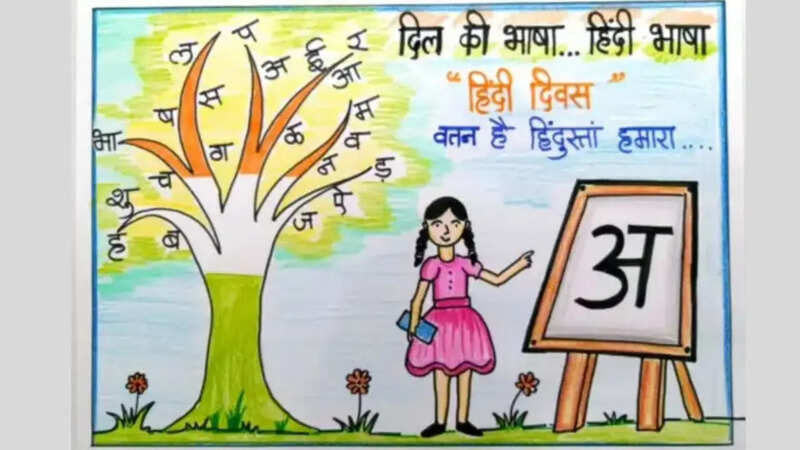 दिल की भाषा... हिंदी भाषा
“हिंदी दिवस”
वतन है हिंदुस्तां हमारा....
ल प अ ई र
आ
ष स म
भा ग क व
च न ड़
शु ऐ
ह ब ज
अ